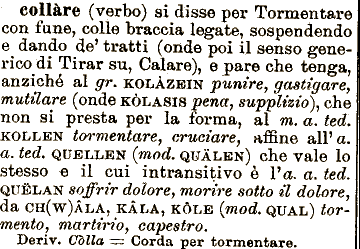 collàre (verbo) si disse per Tormentare
con fune, colle braccia legate, sospendendo
e dando de' tratti (onde poi il senso gene-
rico di Tirar su, Calare), e pare che tenga,
anziché al gr. KOLÀZEIN punire, gastigare,
mutilare (onde KÒLASIS pena, supplizio), che
non si presta per la forma, al m. a. ted.
KOLLEN tormentare, cruciare, affine all' a.
a. ted. QUELLEN (mod. QUÄLEN) che vale lo
stesso e il cui intransitivo è l'a. a. ted.
QUËLAN soffrir dolore, morire sotto il dolore,
da CH(W)ÂLA, KÂLA, KÔLE (mod. QUAL) tor-
mento, martirio, capestro.
Deriv. Còlla = Corda per tormentare.